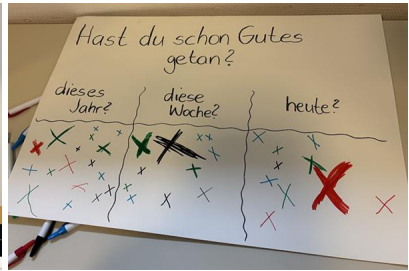 Hast du schon Gutes
getan?
dieses
Jahr?
diese
Woche?
heute?